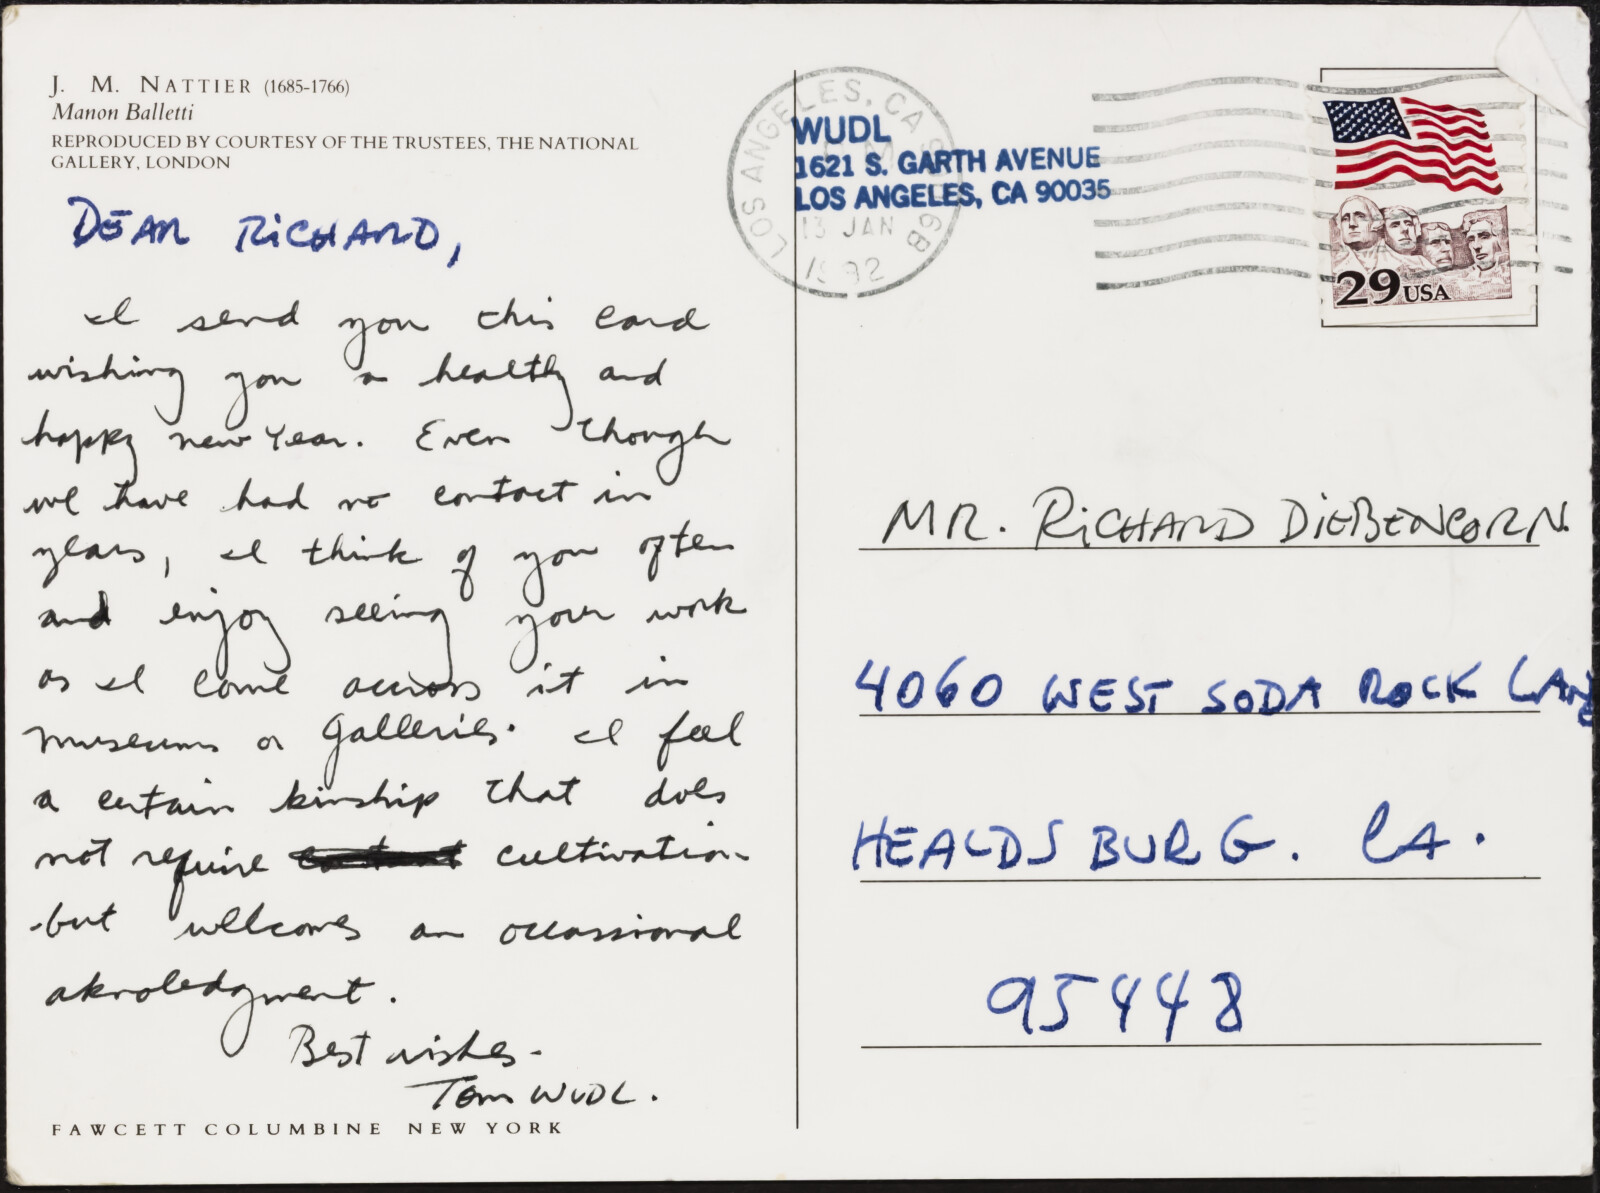 J. M. NATTIER (1685-1766)
Manon Balletti
REPRODUCED BY COURTESY OF THE TRUSTEES, THE NATIONAL
GALLERY, LONDON
DEAR RICHARD,
I send you this card
wishing you a healthy and
happy new Year. Even though
we have had no contact in
years, I think of you often
and enjoy seeing your work
as I come across it in
museums or galleries. I feel
a certain kinship that does
not require cultivation
but wellcomes an occassional
aknoledgment.
Best wishes-
Tom WUDL.
FAWCETT COLUMBINE NEW YORK
LOS ANGELES, CA
13 JAN
1992
WUDL
1621 S. GARTH AVENUE
LOS ANGELES, CA 90035
29 USA
MR. RICHARD DIEBENCORN.
4060 WEST SODA ROCK LANE
HEALDSBURG. CA.
95448